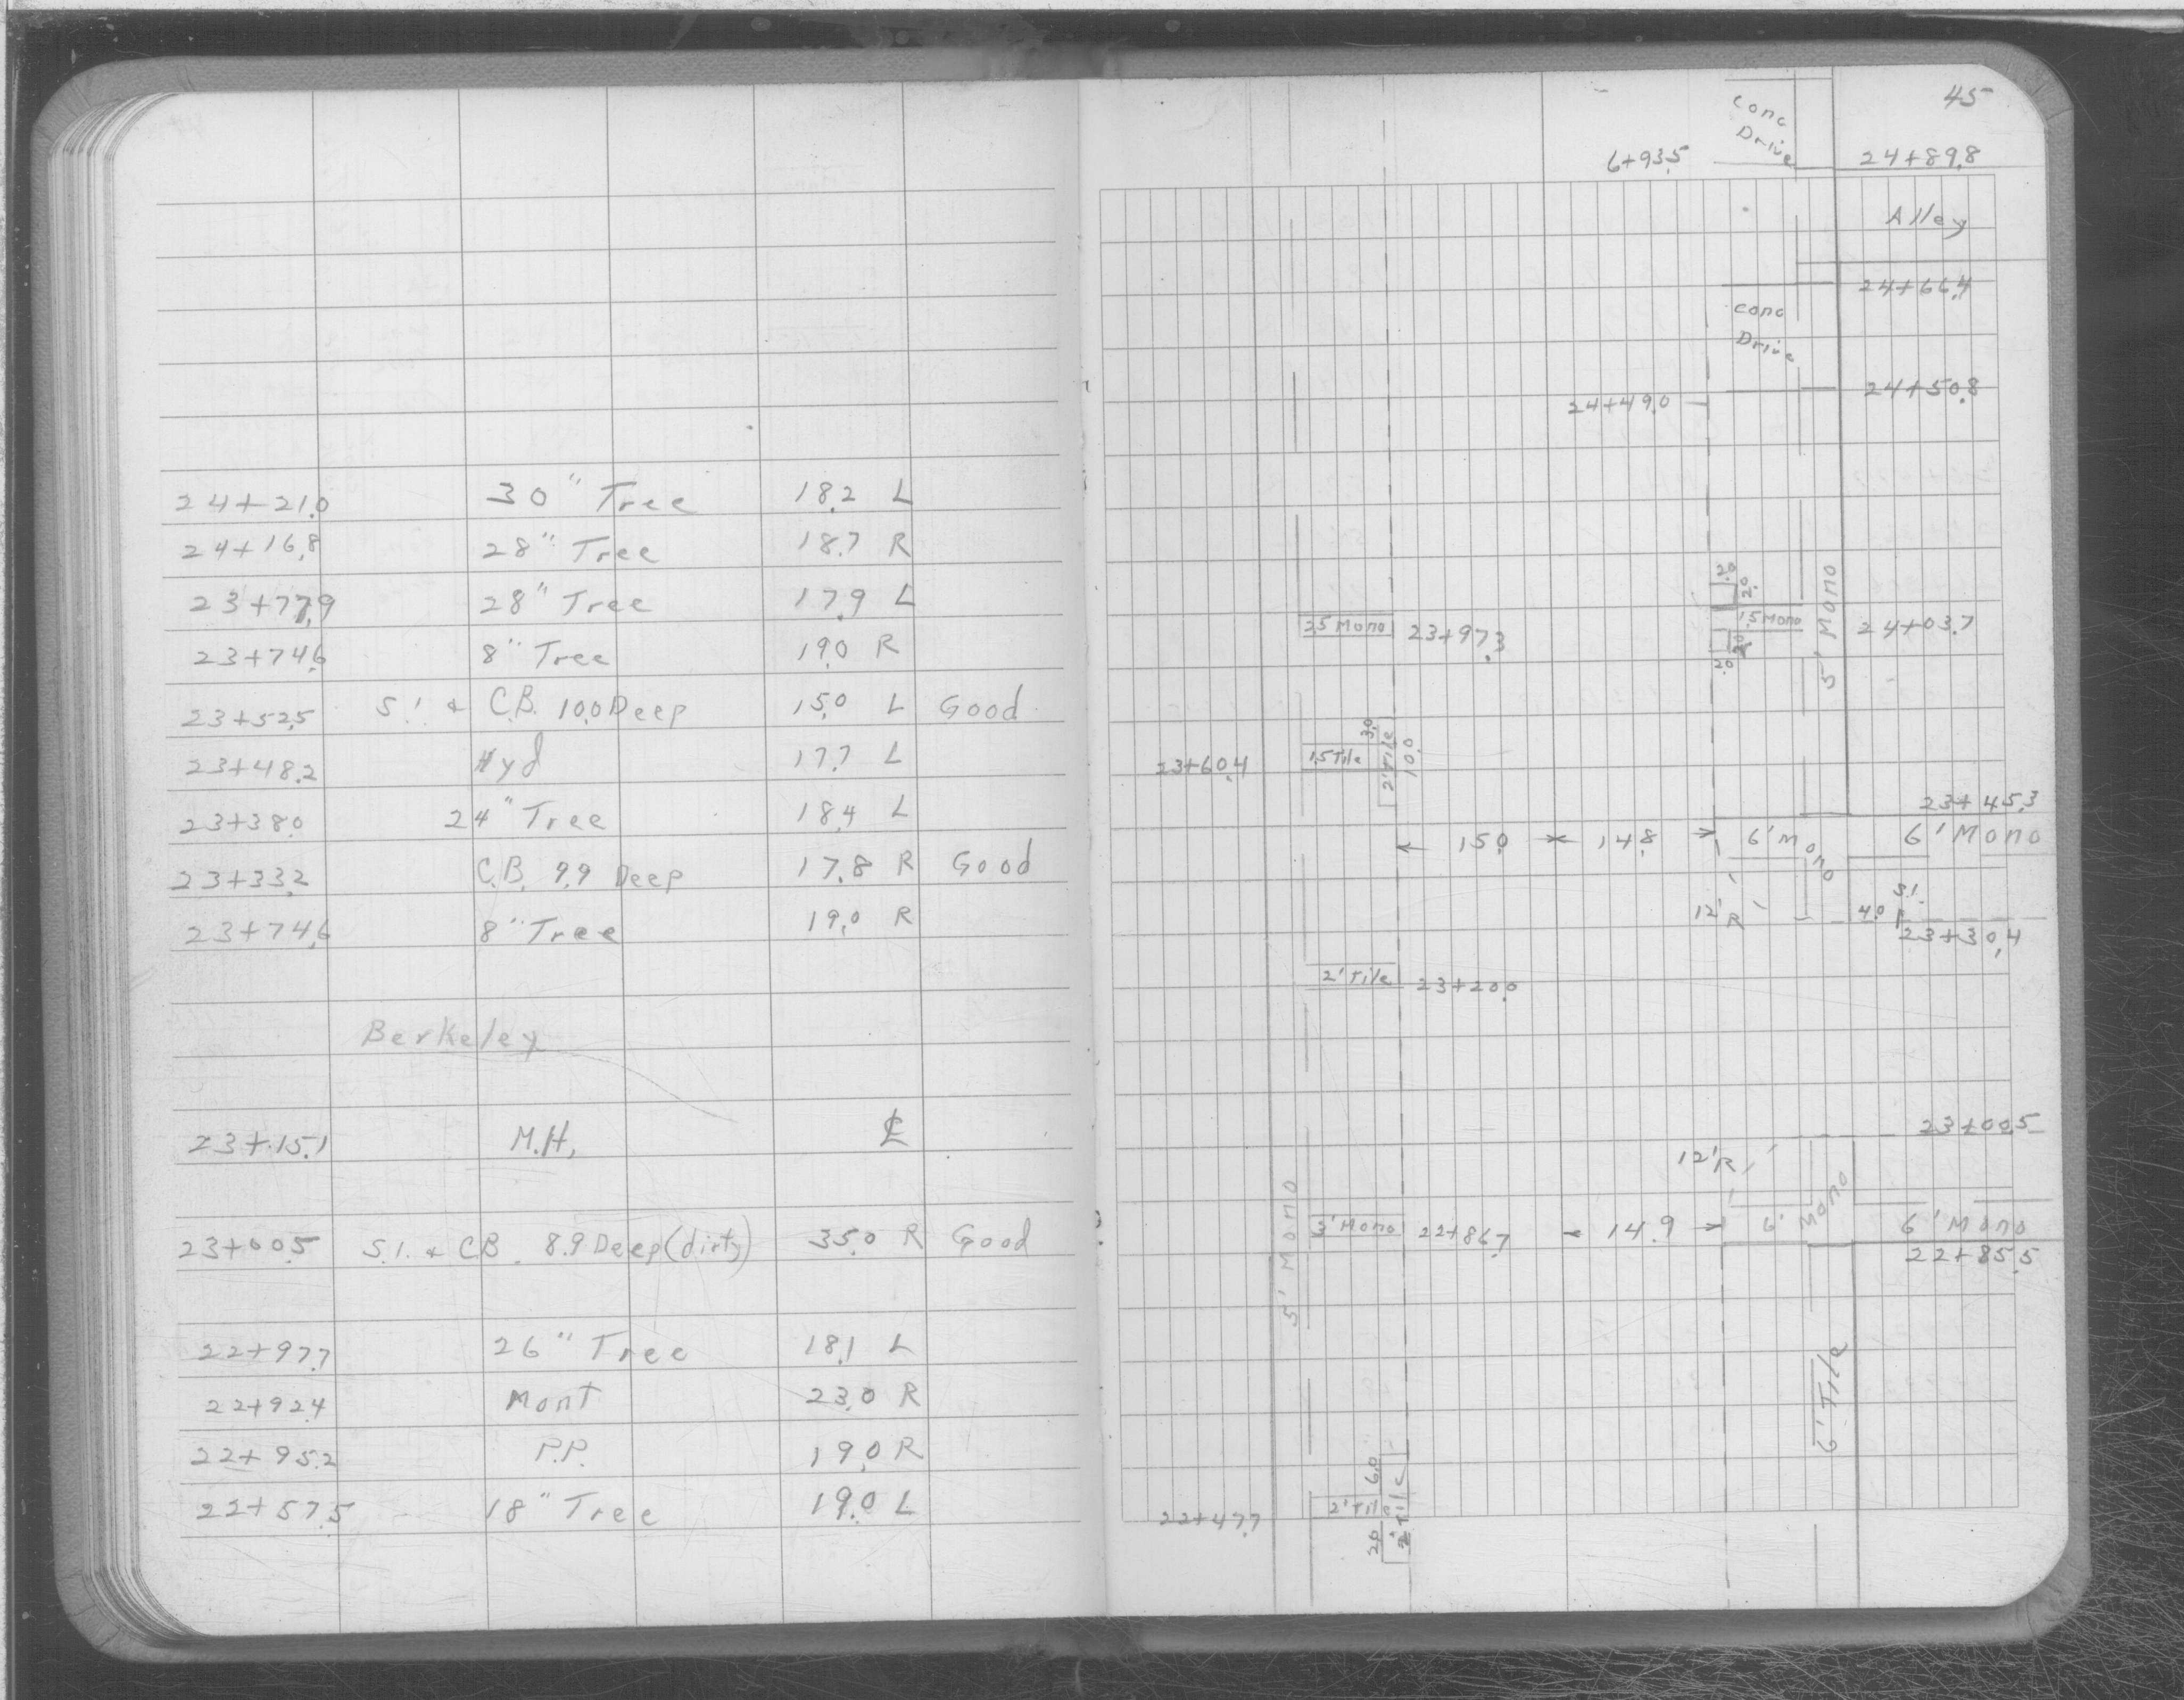 24+21.0 30" Tree 18.2 L
24+16.8 28" Tree 18.7 R
23+77.9 28" Tree 17.9 L
23+74.6 8" Tree 19.0 R
23+52.5 S.I. & C.B. 10.0 Deep 15.0 L Good
23+48.2 Hyd 17.7 L
23+38.0 24" Tree 18.4 L
23+33.2 C.B. 9.9 Deep 17.8 R Good
23+74.6 8" Tree 19.0 R
Berkeley
23+15.1 M.H. ℄
23+00.5 S.I. & C.B. 8.9 Deep (dirty) 35.0 R Good
22+97.7 26" Tree 18.1 L
22+92.4 Mont 23.0 R
22+95.2 P.P. 19.0 R
22+57.5 18" Tree 19.0 L
45
Conc
Drive
6+93.5 24+89.8
Alley
24+66.4
Conc
Drive
24+50.8
24+49.0
5' Mono
2.0
2.0
2.5 Mono 23+97.3 1.5 Mono 24+03.7
2.0
3.0
23+60.4 1.5 Tile 2' Tile 10.0
23+45.3
15.0 14.8 6' Mono 6' Mono
S.I.
12' R 4.0
23+30.4
2' Tile 23+20.0
23+00.5
12' R
5' Mono
3' Mono 22+86.7 14.9 6' Mono 6' Mono
22+85.5
6' Tile
6.0
22+47.7 2' Tile 2' Tile
2.0